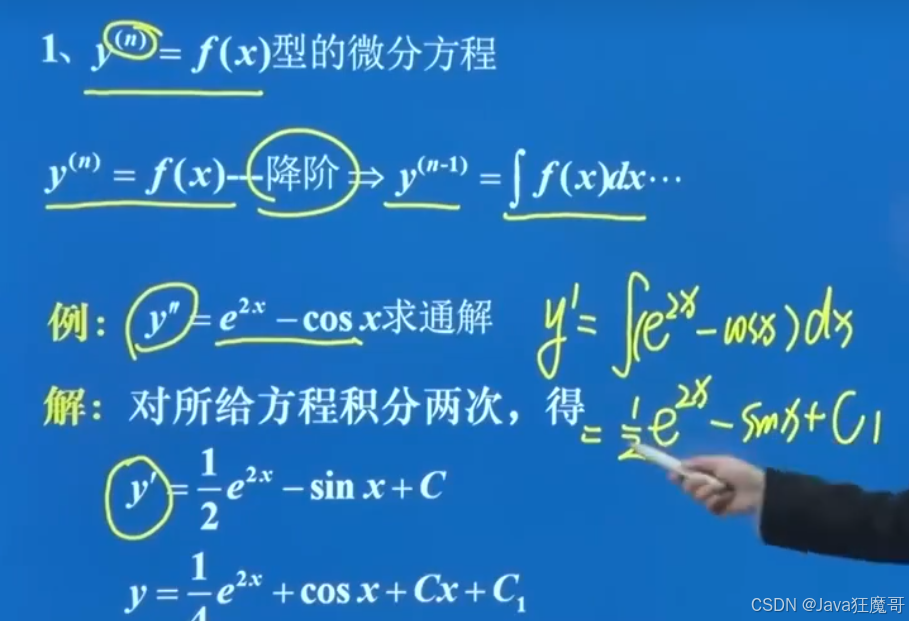 1、y⁽ⁿ⁾ = f(x)型的微分方程
y⁽ⁿ⁾ = f(x)---降阶⇒ y⁽ⁿ⁻¹⁾ = ∫ f(x)dx⋯
例：y″ = e²ˣ − cos x求通解
y′ = ∫(e²ˣ − cosx)dx
解：对所给方程积分两次，得
= ½e²ˣ − sinx + C₁
y′ = 1/2 e²ˣ − sin x + C
y = 1/4 e²ˣ + cos x + Cx + C₁
CSDN @Java狂魔哥